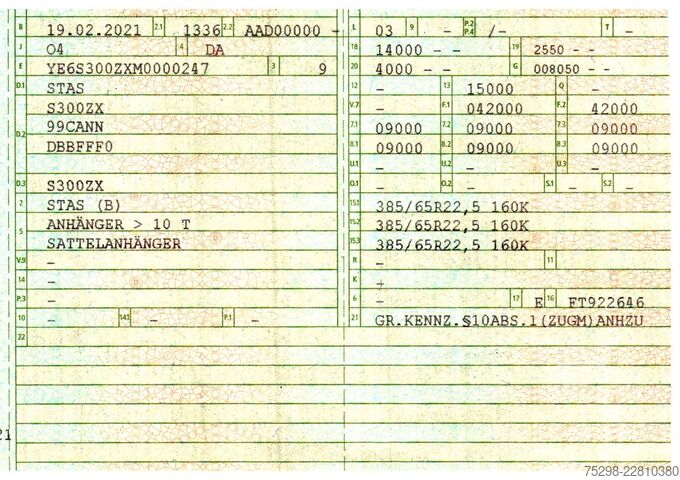 B 19.02.2021 2.1 1336 2.2 AAD00000 - L 03 9 - P.2 P.4 /- T -
J O4 4 DA 18 14000 - - 19 2550 - -
E YE6S300ZXM0000247 3 9 20 4000 - - G 008050 - -
D.1 STAS 12 - 13 15000 Q -
S300ZX V.7 - F.1 042000 F.2 42000
D.2 99CANN 7.1 09000 7.2 09000 7.3 09000
DBBFFF0 8.1 09000 8.2 09000 8.3 09000
U.1 - U.2 - U.3 -
D.3 S300ZX O.1 - O.2 - S.1 - S.2 -
2 STAS (B) 15.1 385/65R22,5 160K
5 ANHÄNGER > 10 T 15.2 385/65R22,5 160K
SATTELANHÄNGER 15.3 385/65R22,5 160K
V.9 - R - 11
14 - K -
P.3 - 6 - 17 E 16 FT922646
10 - 14.1 - P.1 - 21 GR.KENNZ.§10ABS.1(ZUGM)ANHZU
22
21
75298-22810380